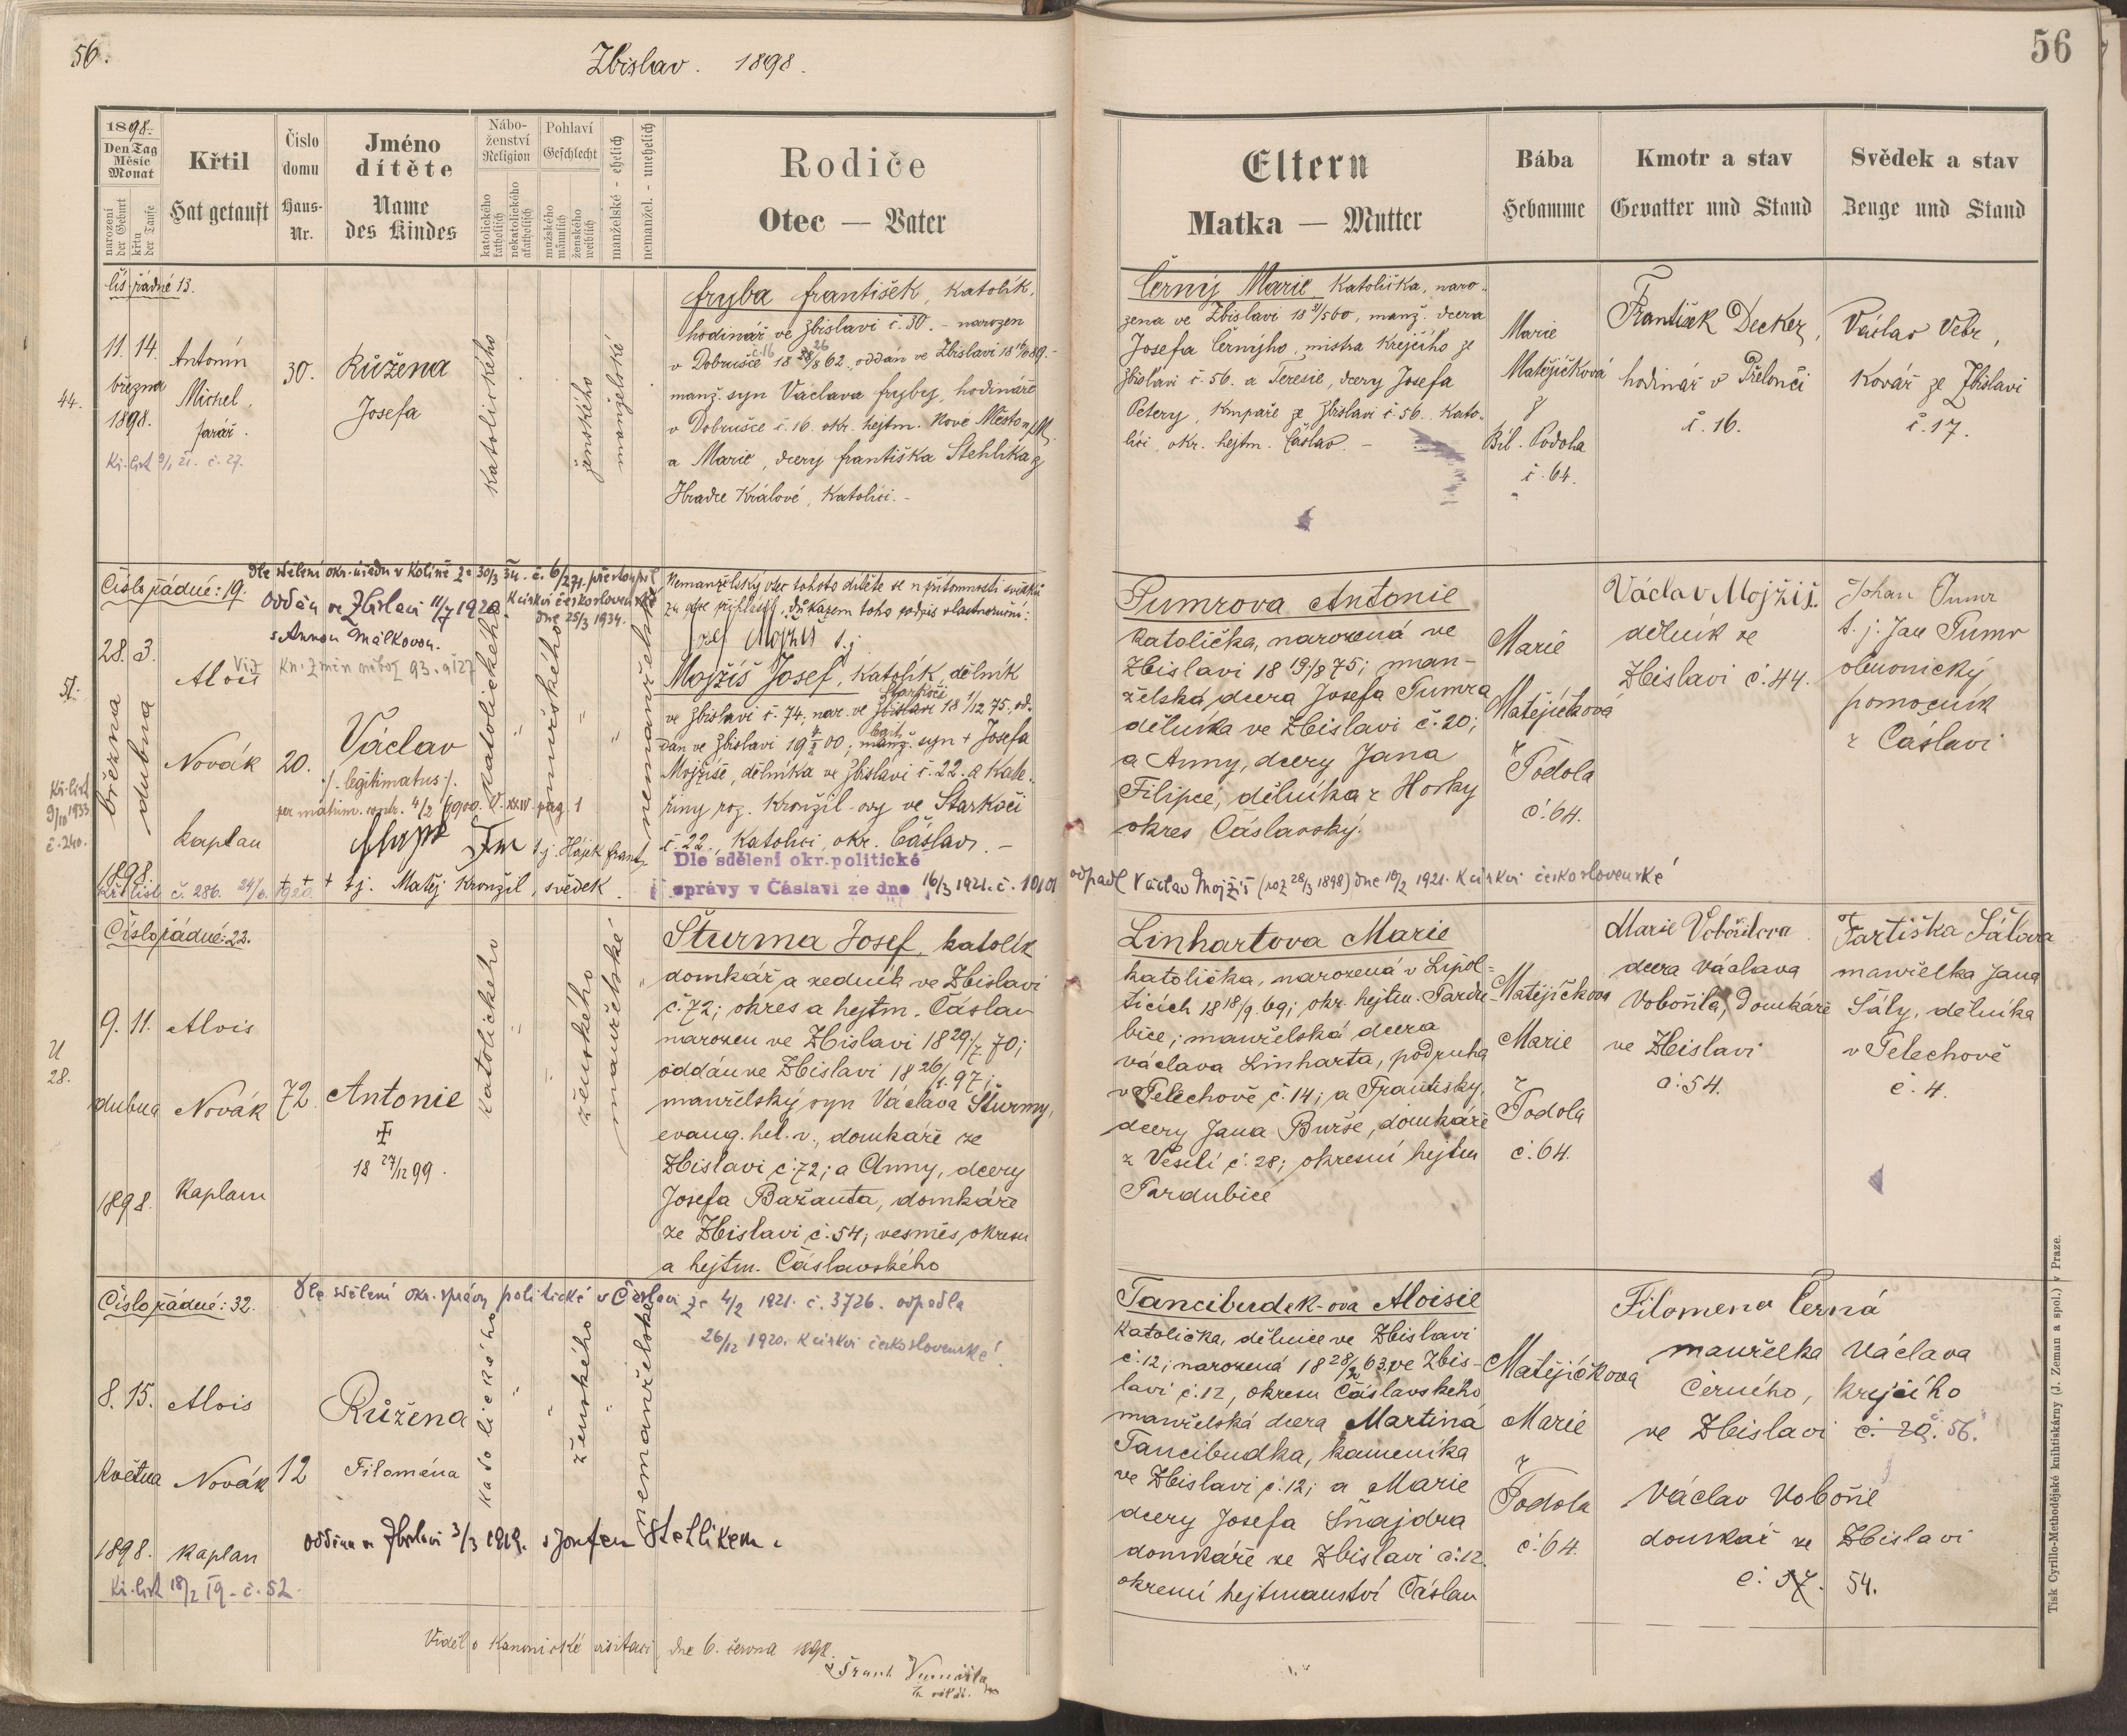 56.
Zbislav. 1898.
56
1898.
Den Tag
Měsíc
Monat
narození
der Geburt
křtu
der Taufe
Křtil
Hat getauft
Číslo
domu
Haus-
Nr.
Jméno
dítěte
Name
des Kindes
Nábo-
ženství
Religion
katolického
katholisch
nekatolického
akatholisch
Pohlaví
Geschlecht
mužského
männlich
ženského
weiblich
manželské - ehelich
nemanžel. - unehelich
Rodiče
Otec — Vater
Eltern
Matka — Mutter
Bába
Hebamme
Kmotr a stav
Gevatter und Stand
Svědek a stav
Zeuge und Stand
čís. řádné 13.
44.
11. 14.
března
1898.
Antonín
Michel,
farář.
30.
Růžena
Josefa
katolického
ženského
manželské
Fryba František, katolík,
hodinář ve Zbislavi č. 30. - narozen
v Dobrušce č. 16 18 26/8 62, oddán ve Zbislavi
manž. syn Václava Fryby, hodináře
v Dobrušce č. 16. okr. hejtm. Nové Město n/M.
a Marie, dcery Františka Stehlíka z
Hradce Králové, katolíci. -
Černý Marie, katolička, naro-
zena ve Zbislavi 18 3/5 60, manž. dcera
Josefa Černýho, mistra krejčího ze
Zbislavi č. 56. a Teresie, dcery Josefa
Petery, ze Zbislavi č. 56. kato-
líci, okr. hejtm. Čáslav. -
Marie
Matějíčková
z
Bíl. Podola
č. 64.
František Decker,
hodinář v Přelouči
č. 16.
Václav Vetr,
kovář ze Zbislavi
č. 17.
Kř. list 9/1 21. č. 27.
Číslo řádné: 19.
Dle sdělení okr. úřadu v Kolíně ze 30/3 34. č. 6/271. přestoupil
k církvi československé
dne 25/3 1934.
Oddán ve Zbislavi 11/7 1920
s Annou Málkovou.
Viz Kn. změn nábož. 93. a 127
51.
28. 3.
března
dubna
1898.
Alois
Novák
kaplan
20.
Václav
./. legitimatus ./.
per matrim. contr. 4/2 1900. V. XXIV. pag. 1
katolického
mužského
nemanželské
Nemanželský otec tohoto dítěte se v přítomnosti svědků
za otce přihlásil, důkazem toho podpis vlastnoruční:
Mojžíš Josef, katolík, dělník
ve Zbislavi č. 74; nar. ve Starkoči 18 1/12 75, od-
dán ve Zbislavi 19 4/2 00; syn + Josefa
Mojžíše, dělníka ve Zbislavi č. 22. a Kate-
řiny roz. Kronžil-ovy ve Starkoči
č. 22., katolíci, okr. Čáslav. -
t. j. Hájek Frant.
+ + + t. j. Matěj Kronžil, svědek.
Kř. list
9/10 1933
č. 240.
Kř. list č. 286. 24/6. 1920.
Dle sdělení okr. politické
správy v Čáslavi ze dne 16/3 1921. č. 10101
odpadl Václav Mojžíš (roz 28/3 1898) dne 10/2 1921. k církvi československé
Pumrova Antonie
katolička, narozená ve
Zbislavi 18 19/8 75; man-
želská dcera Josefa Pumra
dělníka ve Zbislavi č. 20;
a Anny, dcery Jana
Filipce, dělníka z Horky
okres Čáslavský.
Marie
Matějíčková
z
Podola
č. 64.
Václav Mojžíš.
dělník ze
Zbislavi č. 44.
Johan Pumr
t. j. Jan Pumr
obuvnický
pomocník
z Čáslavi
Číslo řádné: 22.
28.
9. 11.
dubna
1898.
Alois
Novák
kaplan
72
Antonie
18 27/12 99.
katolického
ženského
manželské
Šturma Josef, katolík
domkář a zedník ve Zbislavi
č. 72; okres a hejtm. Čáslav
narozen ve Zbislavi 18 29/7 70;
oddán ve Zbislavi 18 26/1. 97;
manželský syn Václava Šturmy,
evang. hel. v., domkáře ze
Zbislavi č. 72; a Anny, dcery
Josefa Bažanta, domkáře
ze Zbislavi č. 54; vesměs okresu
a hejtm. Čáslavského
Linhartova Marie
katolička, narozená v Lipol-
ticích 18 18/9. 69; okr. hejtm. Pardu-
bice; manželská dcera
Václava Linharta, podruha
v Telechově č. 14; a Františky,
dcery Jana Burše, domkáře
z Veselí č. 28; okresní hejtm
Pardubice
Matějíčkova
Marie
z
Podola
č. 64.
Marie Vobořilova
dcera Václava
Vobořila, domkáře
ve Zbislavi
č. 54.
Fartiška Šálova
manželka Jana
Šály, dělníka
v Telechově
č. 4.
Číslo řádné: 32.
Dle sdělení okr. správy politické v Čáslavi ze 4/2 1921. č. 3726. odpadla
26/12 1920. k církvi československé.
8. 15.
května
1898.
Alois
Novák
kaplan
12
Růžena
Filoména
katolického
ženského
nemanželské
oddána ve Zbislavi 3/3 1919. s Josefem Stehlíkem.
Kř. list 18/2 19 - č. 52.
Tancibudek-ova Aloisie
katolička, dělnice ve Zbislavi
č. 12; narozená 18 28/2 63. ve Zbis-
lavi č. 12, okresu Čáslavského
manželská dcera Martina
Tancibudka, kameníka
ve Zbislavi č. 12; a Marie
dcery Josefa Šnajdra
domkáře ze Zbislavi č. 12.
okresní hejtmanství Čáslav
Matějíčková
Marie
z
Podola
č. 64.
Filomena Černá
manželka Václava
Černého, krejčího
ve Zbislavi č. 20. 56.
Václav Vobořil
domkář ze Zbislavi
č. 37. 54.
Viděl v kanonické visitaci dne 6. června 1898.
Tisk Cyrillo-Methodějské knihtiskárny (J. Zeman a spol.) v Praze.